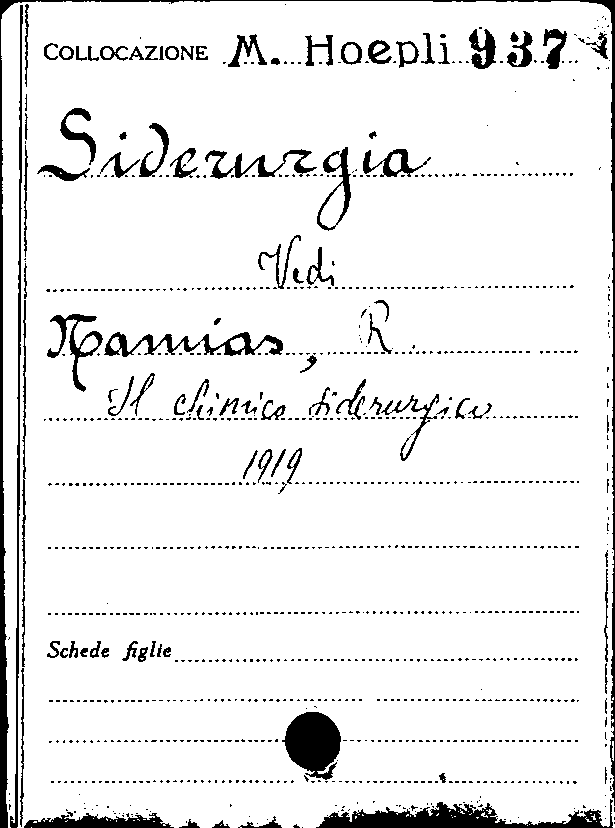 COLLOCAZIONE M. Hoepli 937
Siderurgia
Vedi
Namias, R.
Il chimico siderurgico
1919
Schede figlie